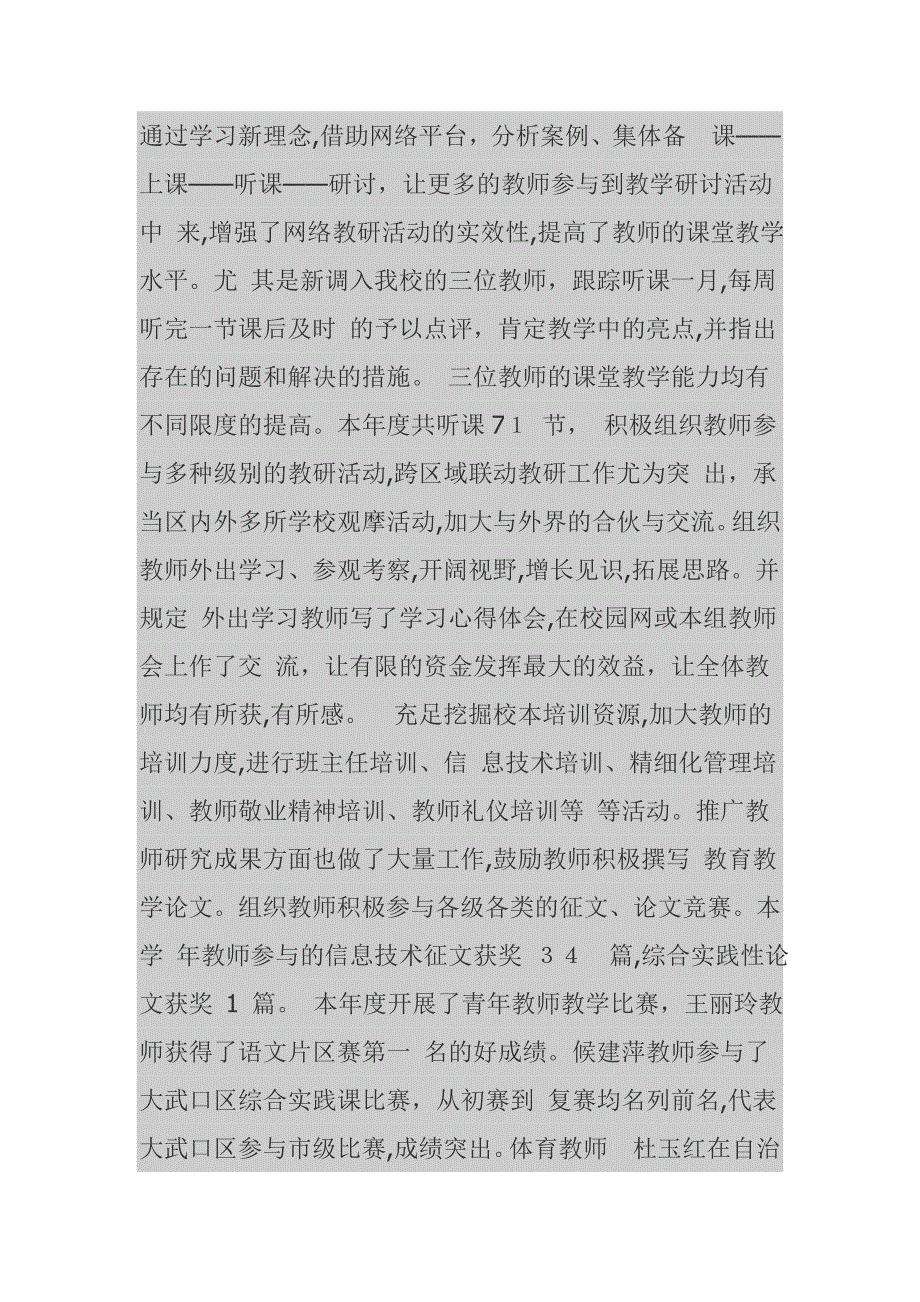 通过学习新理念,借助网络平台，分析案例、集体备　课——
上课——听课——研讨，让更多的教师参与到教学研讨活动
中 来,增强了网络教研活动的实效性,提高了教师的课堂教学
水平。尤 其是新调入我校的三位教师，跟踪听课一月,每周
听完一节课后及时 的予以点评，肯定教学中的亮点,并指出
存在的问题和解决的措施。 三位教师的课堂教学能力均有
不同限度的提高。本年度共听课 7１ 节， 积极组织教师参
与多种级别的教研活动,跨区域联动教研工作尤为突 出，承
当区内外多所学校观摩活动,加大与外界的合伙与交流。组织
教师外出学习、参观考察,开阔视野,增长见识,拓展思路。并
规定 外出学习教师写了学习心得体会,在校园网或本组教师
会上作了交 流，让有限的资金发挥最大的效益，让全体教
师均有所获,有所感。　充足挖掘校本培训资源,加大教师的
培训力度,进行班主任培训、信 息技术培训、精细化管理培
训、教师敬业精神培训、教师礼仪培训等 等活动。推广教
师研究成果方面也做了大量工作,鼓励教师积极撰写 教育教
学论文。组织教师积极参与各级各类的征文、论文竞赛。本
学 年教师参与的信息技术征文获奖 ３４　篇,综合实践性论
文获奖 1 篇。 本年度开展了青年教师教学比赛，王丽玲教
师获得了语文片区赛第一 名的好成绩。候建萍教师参与了
大武口区综合实践课比赛，从初赛到 复赛均名列前名,代表
大武口区参与市级比赛,成绩突出。体育教师　杜玉红在自治